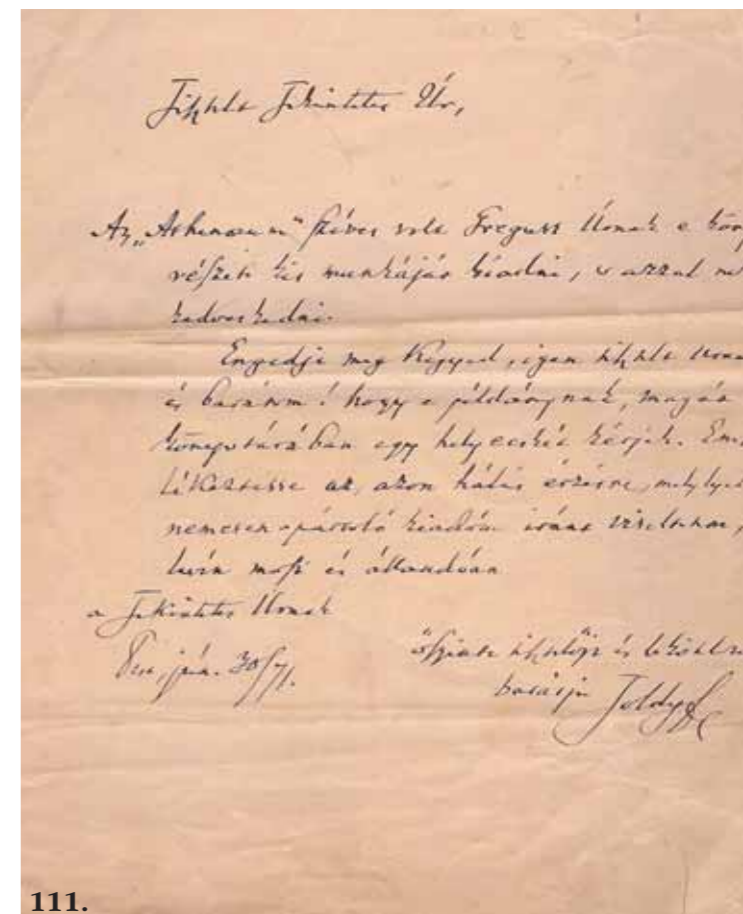 Tisztelt Tekintetes Úr,
Az „Athenaeum" szíves volt Greguss Úrnak e
részét kis munkáját kiadni, s azzal
kedveskedni.
Engedje meg Kegyed, igen tisztelt
és barátom! hogy e példánynak, magán
könyvtárában egy helyecskét kérjek.
lékeztesse az, azon hálás érzésre, mellyel
nemcsak pártoló kiadóm iránt viseltetem,
most és állandóan
a Tekintetes Úrnak
Pest, jún. 30/71.
őszinte tisztelője és lekötelezett
barátja Toldy F
111.